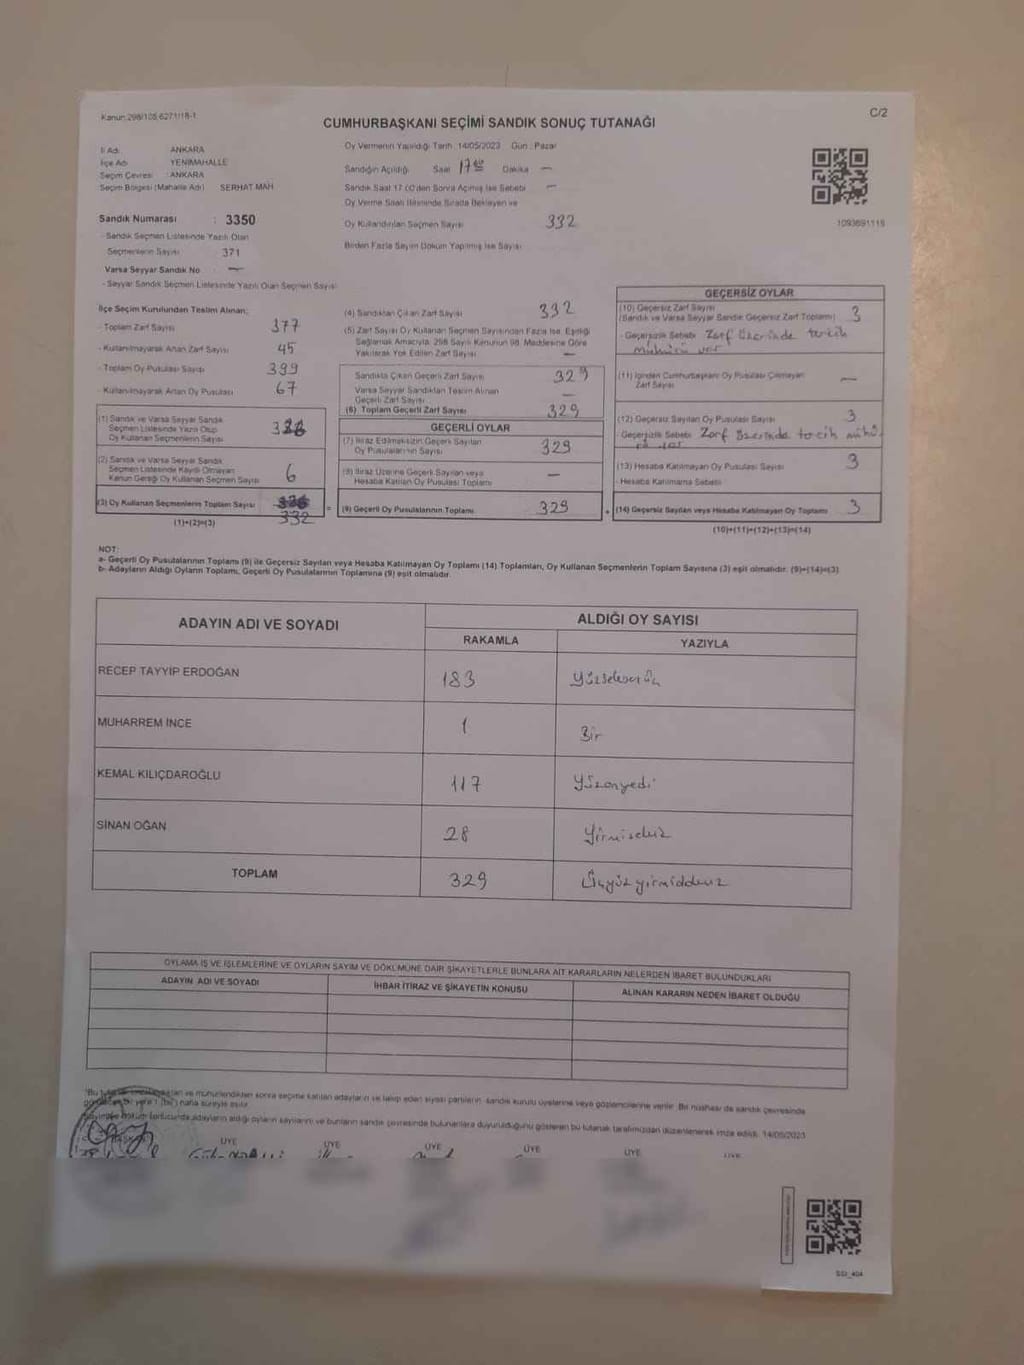 Kanun 298/105,6271/18-1
C/2
CUMHURBAŞKANI SEÇİMİ SANDIK SONUÇ TUTANAĞI
İl Adı ANKARA
İlçe Adı YENİMAHALLE
Seçim Çevresi : ANKARA
Seçim Bölgesi (Mahalle Adı) SERHAT MAH
Sandık Numarası : 3350
- Sandık Seçmen Listesinde Yazılı Olan
Seçmenlerin Sayısı 371
Varsa Seyyar Sandık No —
- Seyyar Sandık Seçmen Listesinde Yazılı Olan Seçmen Sayısı
Oy Vermenin Yapıldığı Tarih 14/05/2023 Gün : Pazar
Sandığın Açıldığı Saat 17 Dakika —
Sandık Saat 17.00'den Sonra Açılmış İse Sebebi —
Oy Verme Saati Bitiminde Sırada Bekleyen ve
Oy Kullandırılan Seçmen Sayısı 332
Birden Fazla Sayım Döküm Yapılmış İse Sayısı
1093691116
İlçe Seçim Kurulundan Teslim Alınan;
- Toplam Zarf Sayısı 377
- Kullanılmayarak Artan Zarf Sayısı 45
- Toplam Oy Pusulası Sayısı 399
- Kullanılmayarak Artan Oy Pusulası 67
(1) Sandık ve Varsa Seyyar Sandık
Seçmen Listesinde Yazılı Olup
Oy Kullanan Seçmenlerin Sayısı
(2) Sandık ve Varsa Seyyar Sandık
Seçmen Listesinde Kaydı Olmayan
Kanun Gereği Oy Kullanan Seçmen Sayısı 6
(3) Oy Kullanan Seçmenlerin Toplam Sayısı 332
(1)+(2)=(3)
(4) Sandıktan Çıkan Zarf Sayısı 332
(5) Zarf Sayısı Oy Kullanan Seçmen Sayısından Fazla İse, Eşitliği
Sağlamak Amacıyla, 298 Sayılı Kanunun 98. Maddesine Göre
Yakılarak Yok Edilen Zarf Sayısı —
Sandıkta Çıkan Geçerli Zarf Sayısı 329
Varsa Seyyar Sandıktan Teslim Alınan
Geçerli Zarf Sayısı —
(6) Toplam Geçerli Zarf Sayısı 329
GEÇERLİ OYLAR
(7) İtiraz Edilmeksizin Geçerli Sayılan
Oy Pusulalarının Sayısı 329
(8) İtiraz Üzerine Geçerli Sayılan veya
Hesaba Katılan Oy Pusulası Toplamı —
= (9) Geçerli Oy Pusulalarının Toplamı 329
GEÇERSİZ OYLAR
(10) Geçersiz Zarf Sayısı
(Sandık ve Varsa Seyyar Sandık Geçersiz Zarf Toplamı) 3
- Geçersizlik Sebebi Zarf üzerinde tercih
mühürü var
(11) İçinden Cumhurbaşkanı Oy Pusulası Çıkmayan
Zarf Sayısı —
(12) Geçersiz Sayılan Oy Pusulası Sayısı 3
- Geçersizlik Sebebi Zarf üzerinde tercih
(13) Hesaba Katılmayan Oy Pusulası Sayısı 3
- Hesaba Katılmama Sebebi
+ (14) Geçersiz Sayılan veya Hesaba Katılmayan Oy Toplamı 3
(10)+(11)+(12)+(13)=(14)
NOT:
a- Geçerli Oy Pusulalarının Toplamı (9) ile Geçersiz Sayılan veya Hesaba Katılmayan Oy Toplamı (14) Toplamları, Oy Kullanan Seçmenlerin Toplam Sayısına (3) eşit olmalıdır. (9)+(14)=(3)
b- Adayların Aldığı Oyların Toplamı, Geçerli Oy Pusulalarının Toplamına (9) eşit olmalıdır.
ADAYIN ADI VE SOYADI ALDIĞI OY SAYISI
RAKAMLA YAZIYLA
RECEP TAYYİP ERDOĞAN 183
MUHARREM İNCE 1 Bir
KEMAL KILIÇDAROĞLU 117 Yüzonyedi
SİNAN OĞAN 28 Yirmisekiz
TOPLAM 329
OYLAMA İŞ VE İŞLEMLERİNE VE OYLARIN SAYIM VE DÖKÜMÜNE DAİR ŞİKAYETLERLE BUNLARA AİT KARARLARIN NELERDEN İBARET BULUNDUKLARI
ADAYIN ADI VE SOYADI İHBAR İTİRAZ VE ŞİKAYETİN KONUSU ALINAN KARARIN NEDEN İBARET OLDUĞU
ve mühürlendikten sonra seçime katılan adayların ve talep eden siyasi partilerin sandık kurulu üyelerine veya gözlemcilerine verilir. Bir nüshası da sandık çevresinde
adayların aldığı oyların sayılarını ve bunların sandık çevresinde bulunanlara duyurulduğunu gösteren bu tutanak tarafımızdan düzenlenerek imza edildi. 14/05/2023
ÜYE ÜYE ÜYE ÜYE ÜYE ÜYE
SSI_404